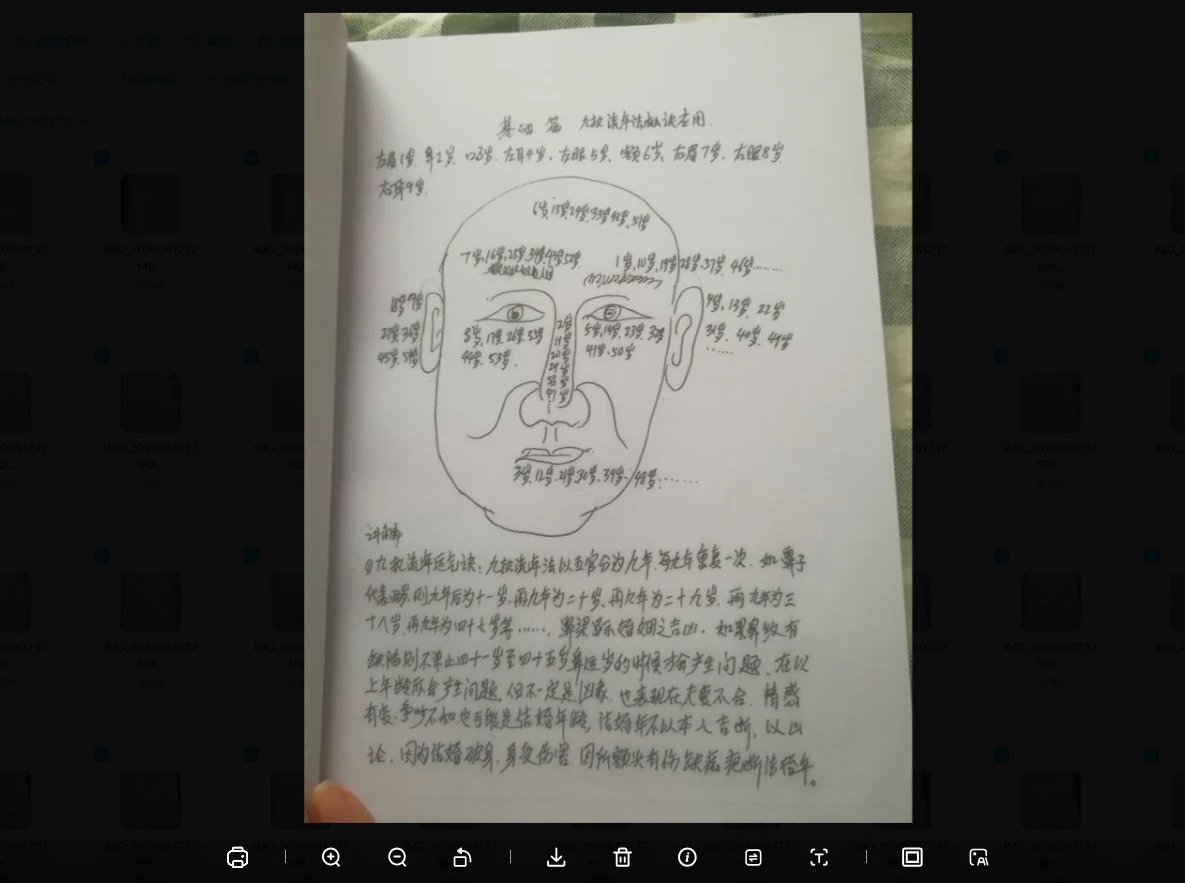 基础篇 九执流年法秘诀应用
左眉1岁.鼻2岁.口3岁.左耳4岁.左眼5岁.额6岁.右眉7岁.右眼8岁
右耳9岁.
6岁.15岁.24岁.33岁.42岁.51岁
7岁.16岁.25岁.34岁.43岁.52岁.
1岁.10岁.19岁.28岁.37岁.46岁......
4岁.13岁.22岁
31岁.40岁.49岁
......
27岁.36岁
45岁.54岁
8岁.17岁.26岁.35岁
44岁.53岁.
2岁
11岁
20岁
29岁
38岁
47岁
5岁.14岁.23岁.32岁
41岁.50岁
3岁.12岁.21岁.30岁.39岁.48岁......
讲解
九执流年运气诀:九执流年法以五官分为九年.每九年重复一次.如鼻子
代表两岁.则九年后为十一岁.再九年为二十岁.再九年为二十九岁.再九年为三
十八岁.再九年为四十七岁等......鼻梁显示婚姻之吉凶.如果鼻纹有
缺陷则不单止四十一岁至四十五岁鼻运岁的时候才会产生问题.在以
上年龄亦会产生问题.但不一定是凶象.也表现在夫妻不合.情感
有变.争吵不和也可能是结婚年龄.结婚年不以本人吉断.以凶
论.因为结婚破身.身受伤害.因所额头有伤缺疤断结婚年。
IMG_20200517_17